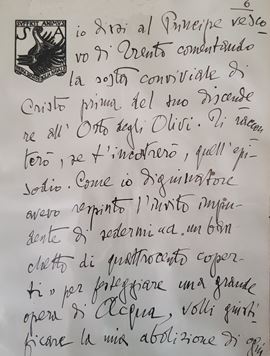 6
SVFFICIT ANIMVS
io dissi al Principe vesco
vo di Trento comentando
la sosta conviviale di
Cristo prima del suo discende
re all' Orto degli Olivi. Ti raccon
terò, se t'incontrerò, quell'epi
sodio. Come io digiunatore
avevo respinto l'invito impu
dente di sedermi "a un ban
chetto di quattrocento coper
ti" per festeggiare una grande
opera di Acqua, volli giusti
ficare la mia abolizione di ogni